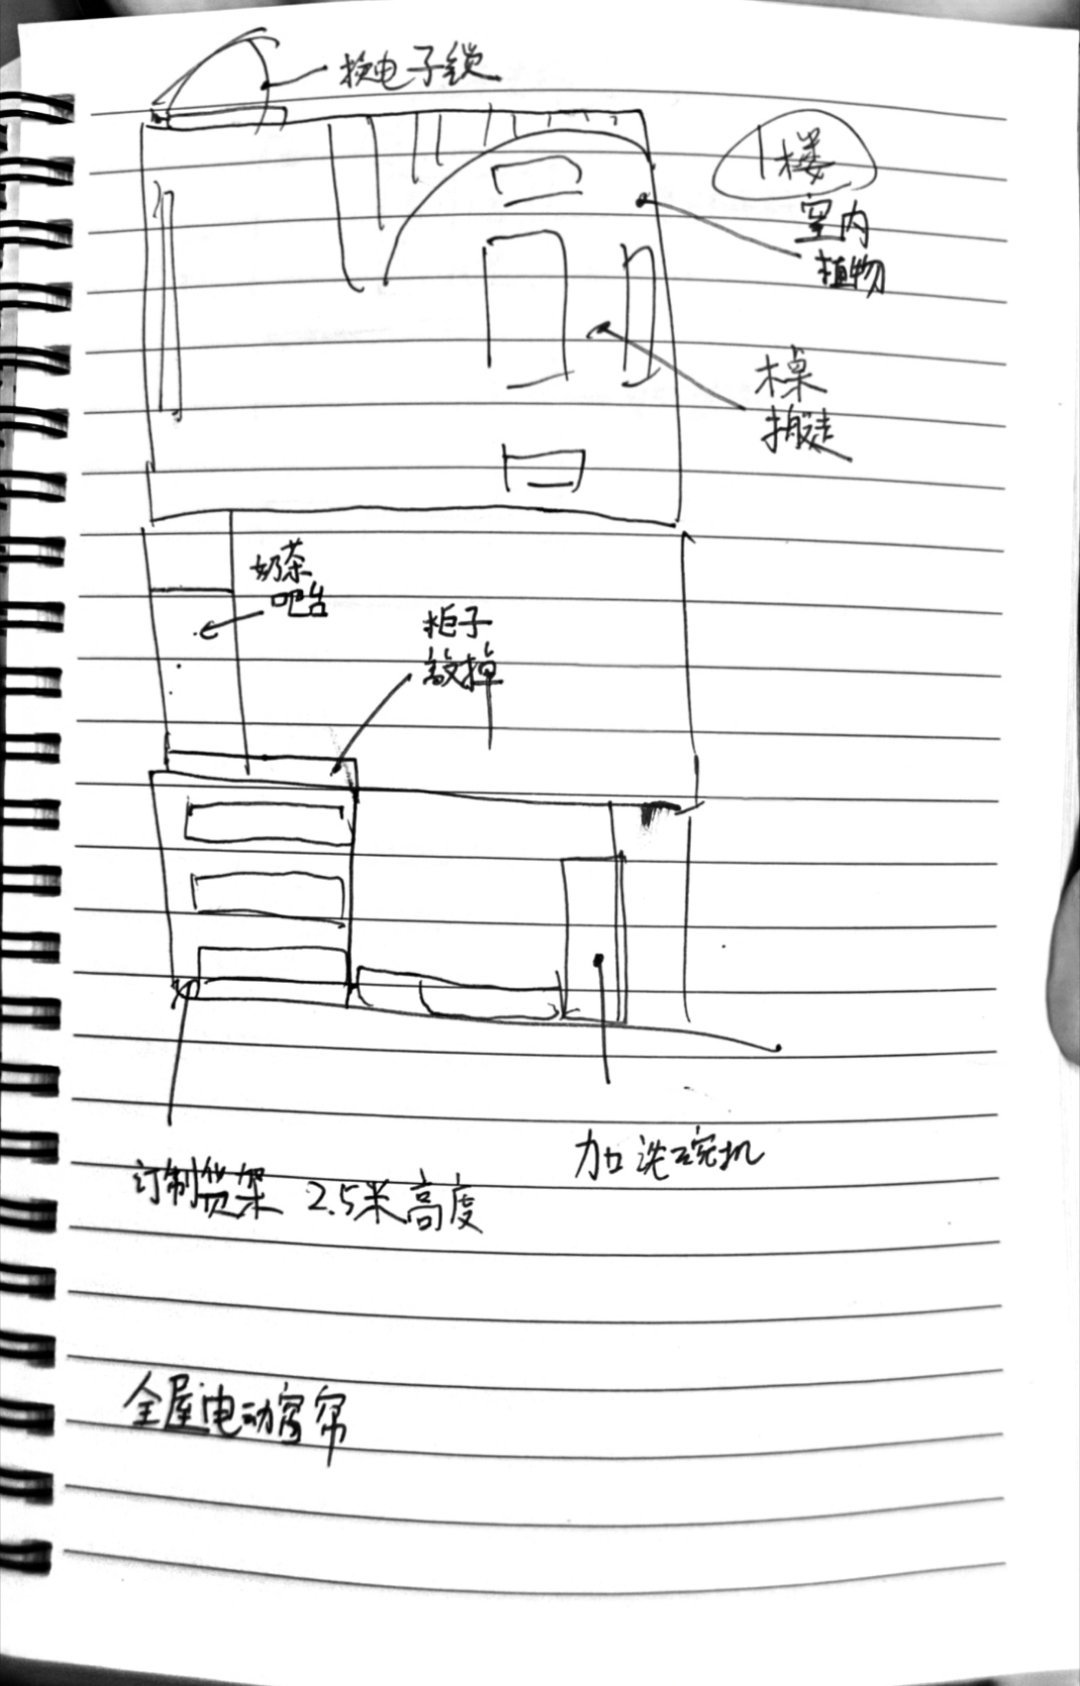 换电子锁
1楼
室内
植物
木桌
搬走
奶茶
吧台
柜子
敲掉
加洗碗机
订制货架 2.5米高度
全屋电动窗帘